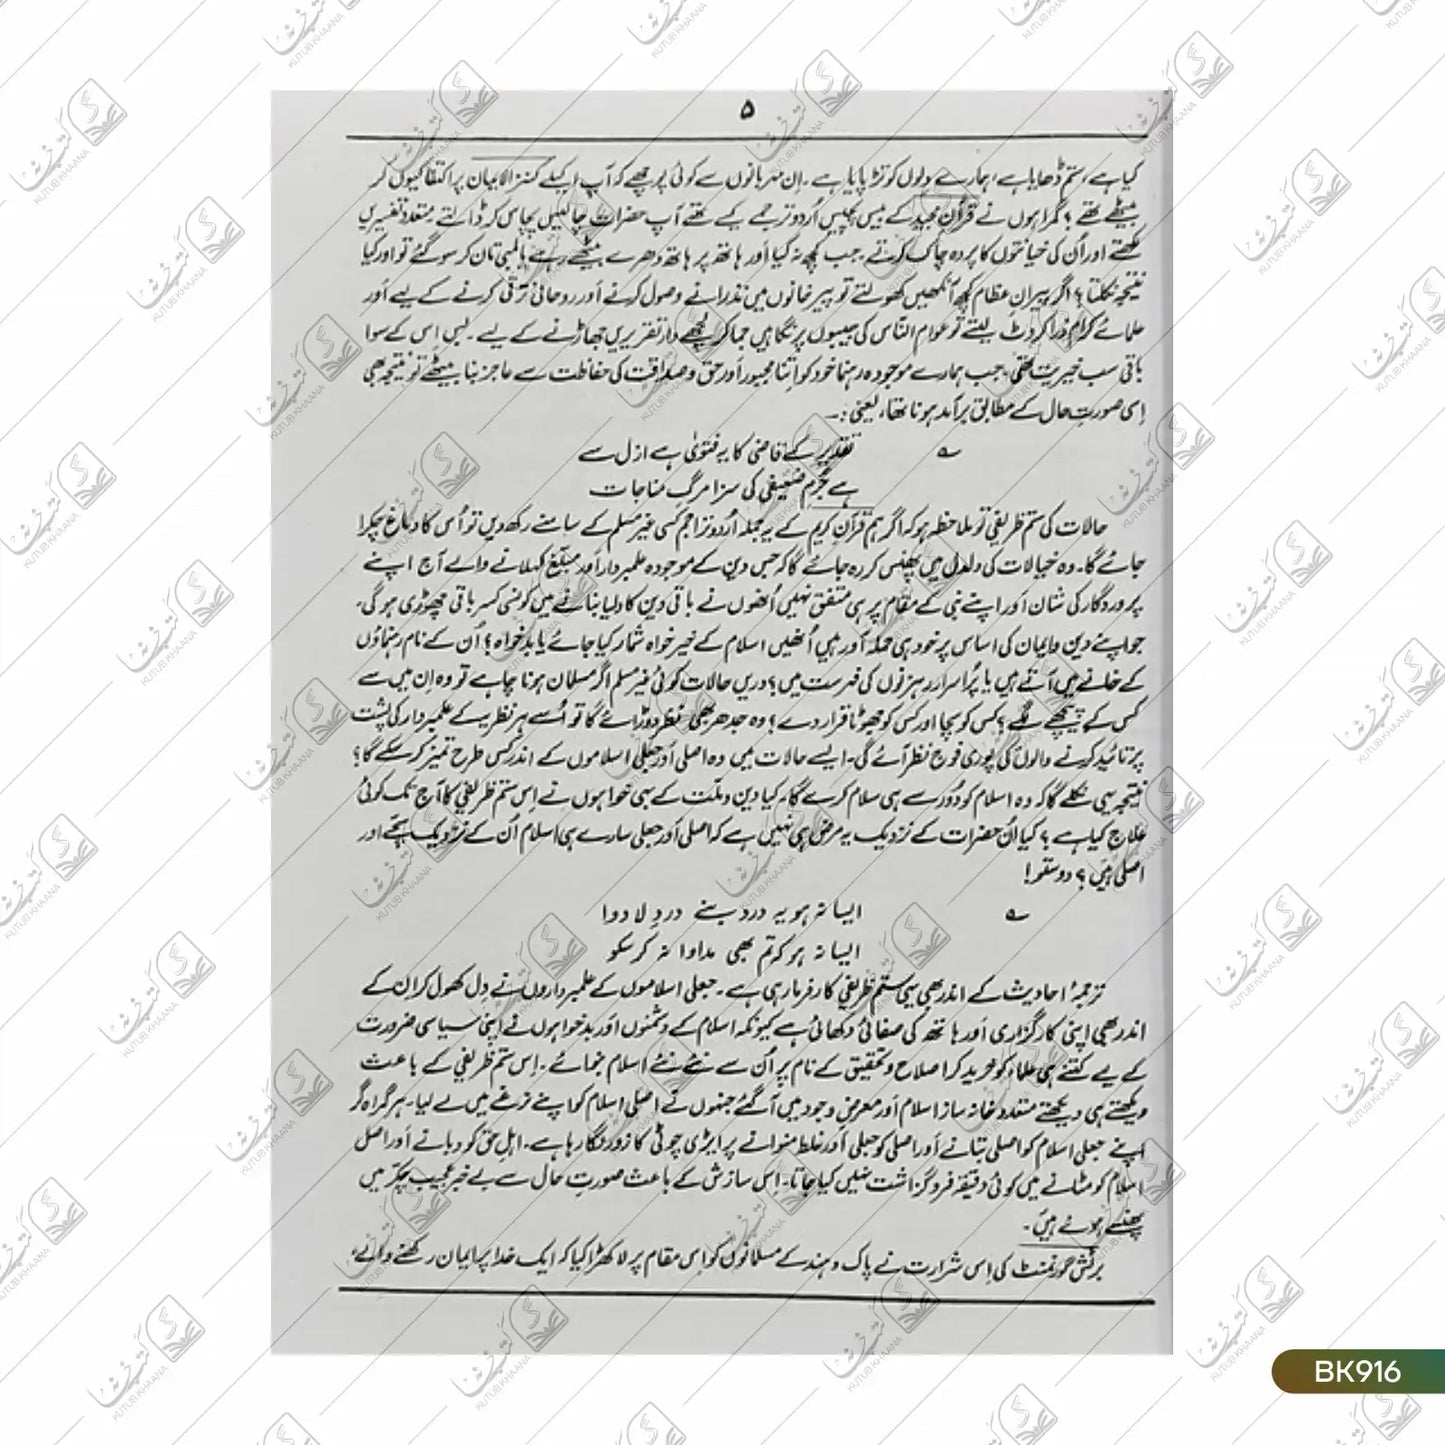 ۵
کیا ہے، ستم ڈھایا ہے، ہمارے دلوں کو تڑپایا ہے۔ اِن مہربانوں سے کوئی پوچھے کہ آپ اکیلے کنز الایمان پر اکتفا کیوں کر
بیٹھے تھے؟ گمراہوں نے قرآن مجید کے بیس پچیس اُردو ترجمے کیے تھے آپ حضرات چالیس پچاس کر ڈالتے متعدد تفسیریں
لکھتے اور اُن کی خیانتوں کا پردہ چاک کرتے، جب کچھ نہ کیا اَور ہاتھ پر ہاتھ دھرے بیٹھے رہے یا لمبی تان کر سو گئے تو اور کیا
نتیجہ نکلتا؟ اگر پیرانِ عظام کچھ آنکھیں کھولتے تو پیرخانوں میں نذرانے وصول کرنے اَور روحانی ترقی کرنے کے لیے اَور
علمائے کرام ذرا کروٹ لیتے تو عوام الناس کی جیبوں پر نگاہیں جما کر لچھے دار تقریریں جھاڑنے کے لیے۔ بس اِس کے سوا
باقی سب خیریت تھی، جب ہمارے موجودہ رہنما خود کو اِتنا مجبور اَور حق و صداقت کی حفاظت سے عاجز بنا بیٹھے تو نتیجہ بھی
اِسی صورتِ حال کے مطابق برآمد ہونا تھا، یعنی :۔
؎ تقدیر کے قاضی کا یہ فتویٰ ہے ازل سے
ہے جُرمِ ضعیفی کی سزا مرگِ مناجات
حالات کی ستم ظریفی تو ملاحظہ ہو کہ اگر ہم قرآنِ کریم کے یہ جملہ اُردو تراجم کسی غیر مسلم کے سامنے رکھ دیں تو اُس کا دماغ چکرا
جائے گا۔ وہ خیالات کی دلدل میں پھنس کر رہ جائے گا کہ جس دین کے موجودہ علمبردار اَور مبلغ کہلانے والے آج اپنے
پروردگار کی شان اور اپنے نبی کے مقام پر ہی متفق نہیں اُنھوں نے باقی دین کا حلیا بنانے میں کونسی کسر باقی چھوڑی ہو گی۔
جو اپنے دین و ایمان کی اساس پر خود ہی حملہ آور ہیں اُنھیں اسلام کے خیر خواہ شمار کیا جائے یا بدخواہ؟ اُن کے نام رہنماؤں
کے خانے میں آتے ہیں یا پُراسرار رہزنوں کی فہرست میں؟ دریں حالات کوئی غیر مسلم اگر مسلمان ہونا چاہے تو وہ اِن میں سے
کس کے پیچھے لگے؟ کس کو سچا اور کس کو جھوٹا قرار دے؟ وہ جدھر بھی نظر دوڑائے گا تو اُسے ہر نظریے کے علمبردار کی پشت
پر تائید کرنے والوں کی پوری فوج نظر آئے گی۔ ایسے حالات میں وہ اصلی اَور جعلی اسلاموں کے اندر کس طرح تمیز کر سکے گا؟
نتیجہ یہی نکلے گا کہ وہ اسلام کو دُور سے ہی سلام کرے گا۔ کیا دین و ملّت کے بہی خواہوں نے اِس ستم ظریفی کا آج تک کوئی
علاج کیا ہے؟ کیا اُن حضرات کے نزدیک یہ مرض ہی نہیں ہے کہ اصلی اَور جعلی سارے ہی اسلام اُن کے نزدیک سچے اور
اصلی ہیں؟ دوستو!
؎ ایسا نہ ہو یہ درد بنے دردِ لا دوا
ایسا نہ ہو کہ تم بھی مداوا نہ کر سکو
ترجمۂ احادیث کے اندر بھی یہی ستم ظریفی کار فرما رہی ہے۔ جعلی اسلاموں کے علمبرداروں نے دِل کھول کر ان کے
اندر بھی اپنی کارگزاری اَور ہاتھ کی صفائی دکھائی ہے کیونکہ اسلام کے دشمنوں اَور بدخواہوں نے اپنی سیاسی ضرورت
کے لیے کتنے ہی علماء کو خرید کر اصلاح و تحقیق کے نام پر اُن سے نئے نئے اسلام بنوائے۔ اِس ستم ظریفی کے باعث
دیکھتے ہی دیکھتے متعدد خانہ ساز اسلام اَور معرضِ وجود میں آ گئے جنہوں نے اصلی اسلام کو اپنے نرغے میں لے لیا۔ ہر گمراہ گر
اپنے جعلی اسلام کو اصلی بتانے اَور اصلی کو جعلی اَور غلط منوانے پر ایڑی چوٹی کا زور لگا رہا ہے۔ اہلِ حق کو دبانے اَور اصل
اسلام کو مٹانے میں کوئی دقیقہ فروگزاشت نہیں کیا جاتا۔ اِس سازش کے باعث صورتِ حال سے بے خبر عجیب چکر میں
پھنسے ہوئے ہیں۔
برٹش گورنمنٹ کی اِس شرارت نے پاک و ہند کے مسلمانوں کو اِس مقام پر لا کھڑا کیا کہ ایک خدا پر ایمان رکھنے والے،
BK916